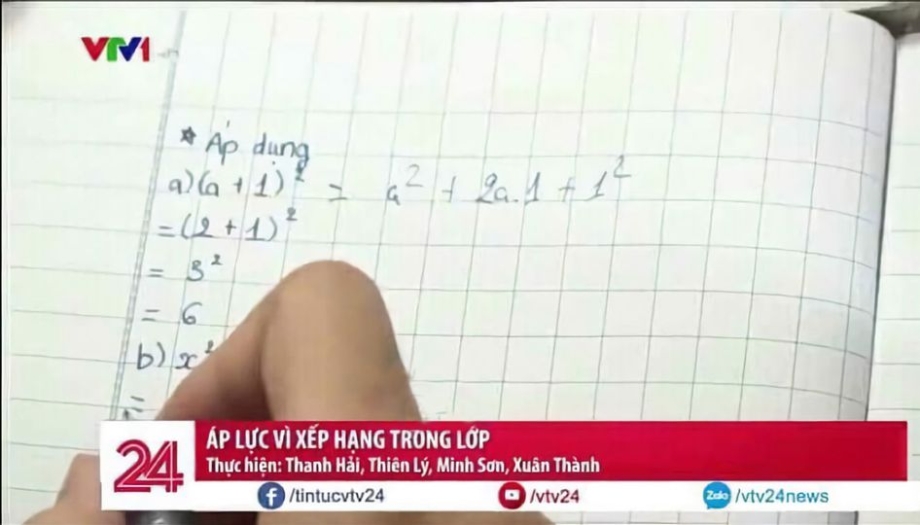 VTV1
* Áp dụng
a)(a + 1)² = a² + 2a.1 + 1²
= (2 + 1)²
= 3²
= 6
b) x²
=
24
ÁP LỰC VÌ XẾP HẠNG TRONG LỚP
Thực hiện: Thanh Hải, Thiên Lý, Minh Sơn, Xuân Thành
/tintucvtv24
/vtv24
Zalo /vtv24news